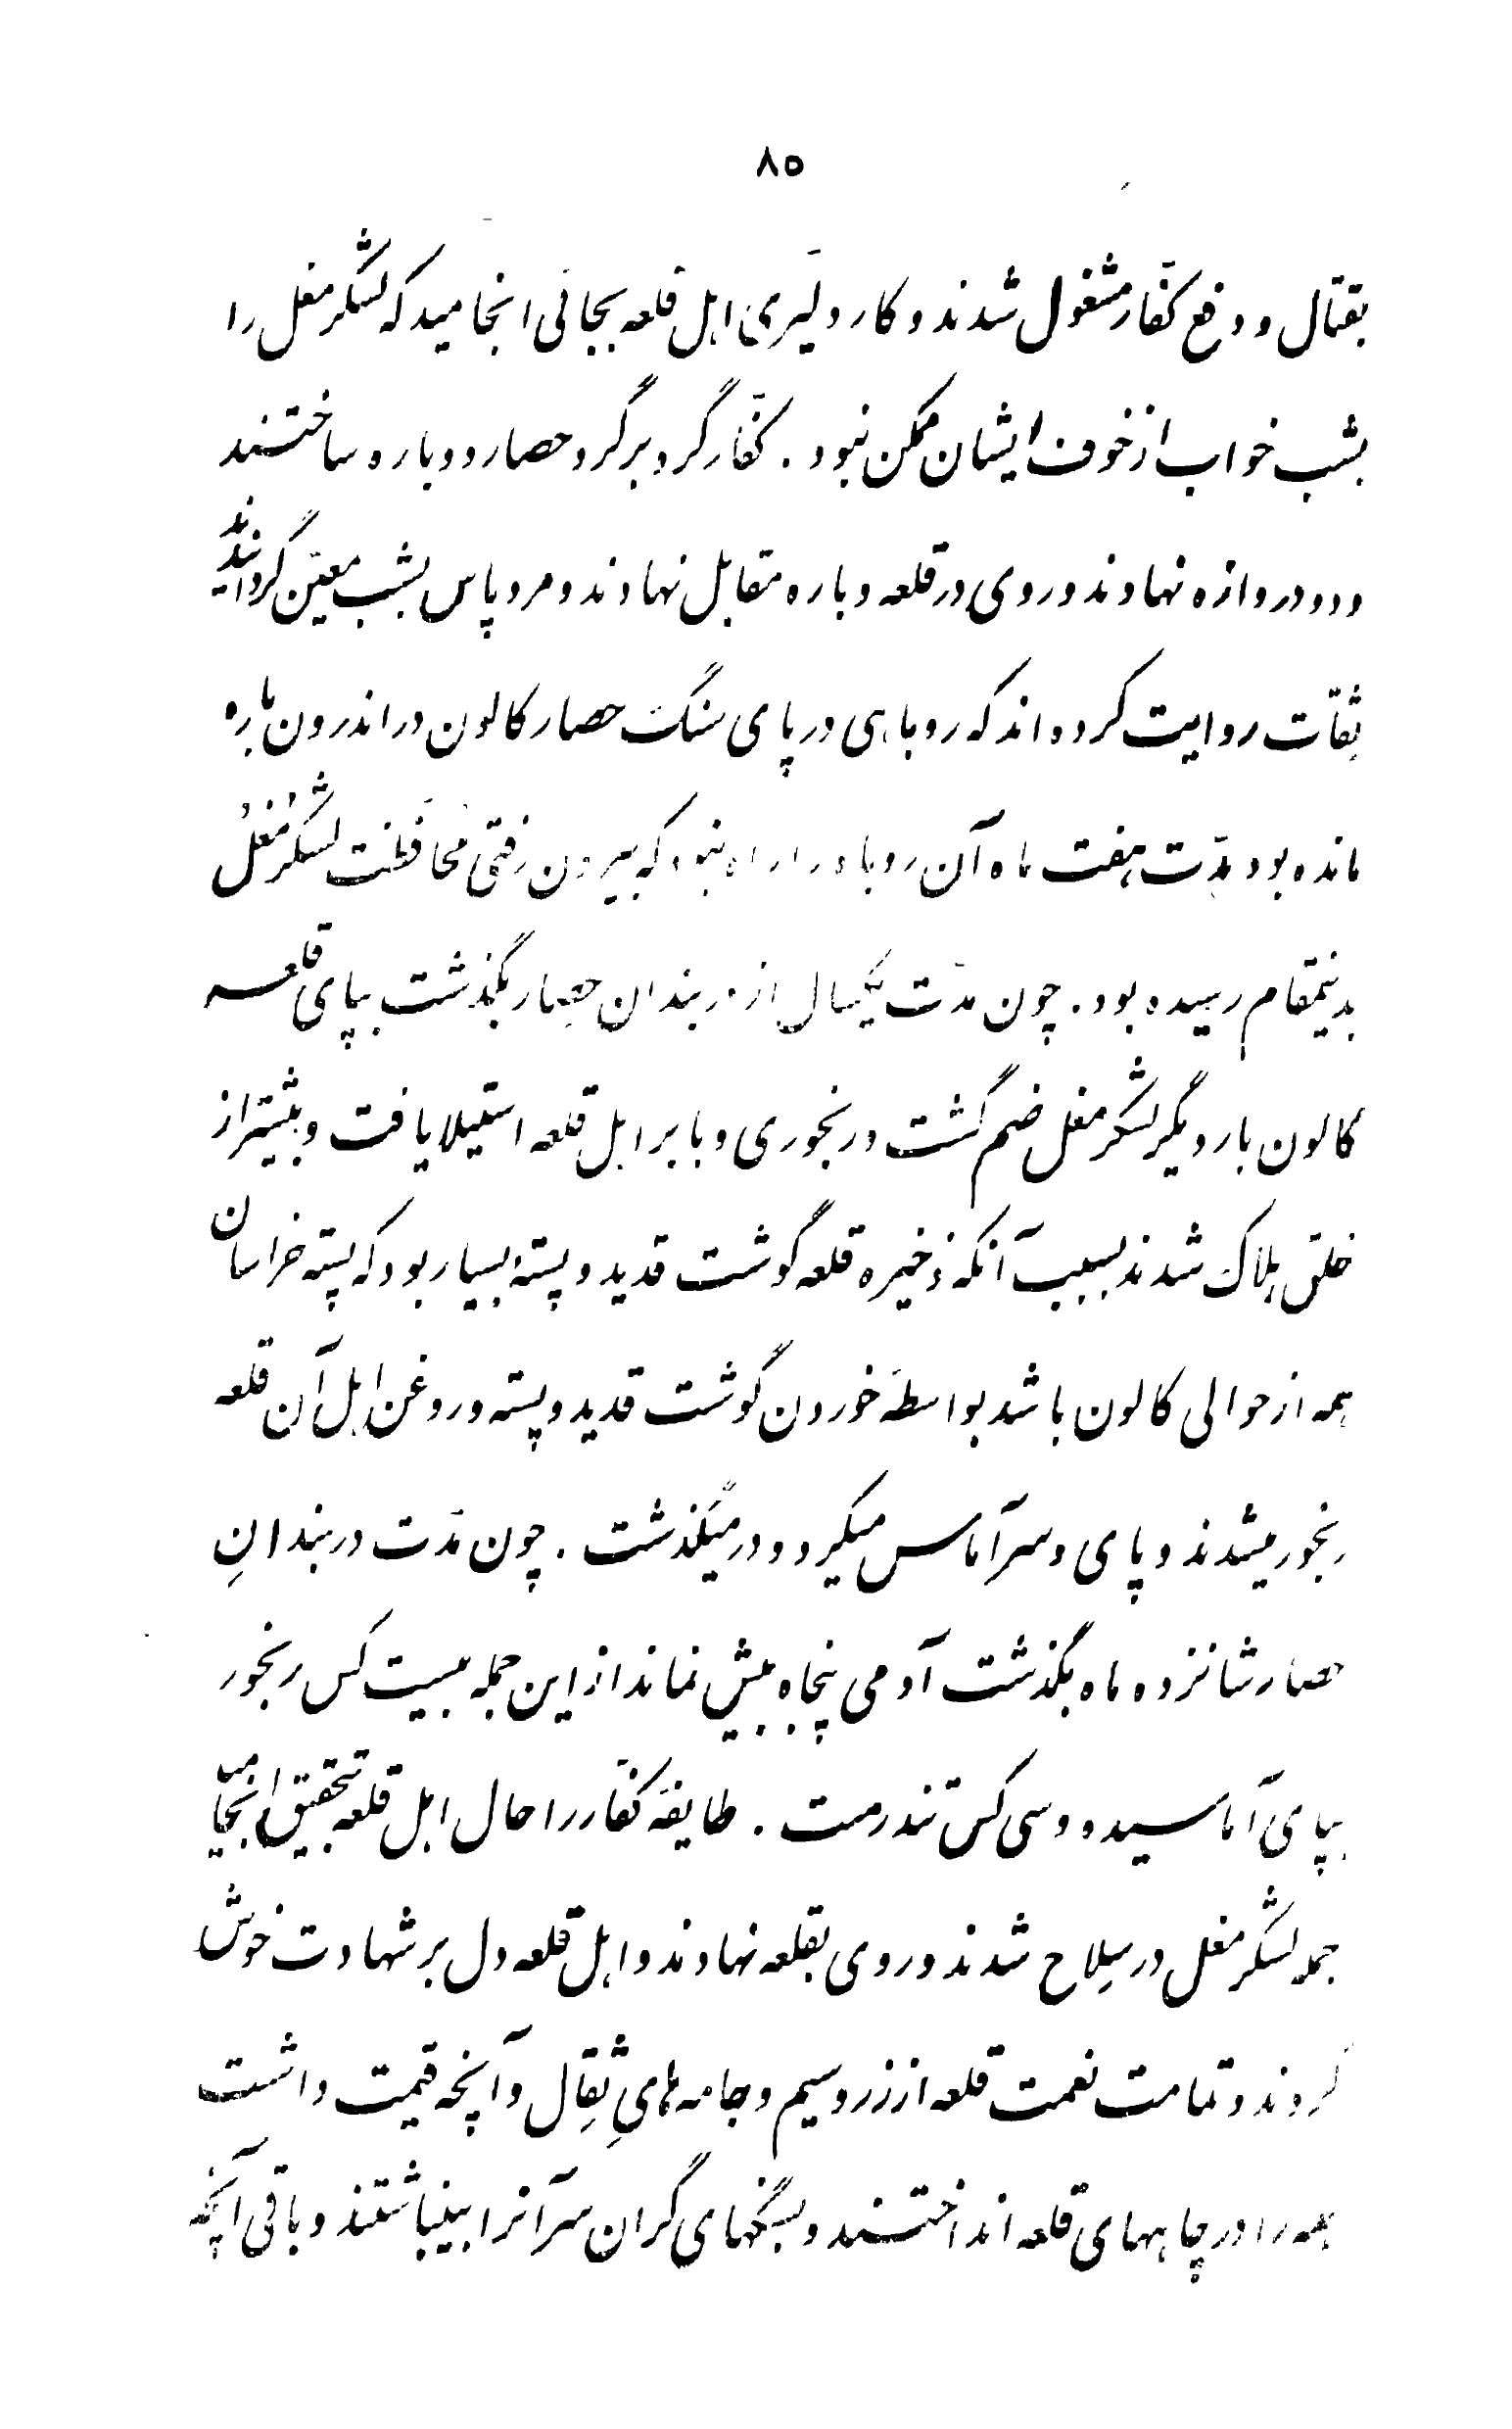 ۸۵
بقتال و دفع کفّار مشغول شدند و کار دلیری اهل قلعه بجائی انجامید که لشکر مغل را
بشب خواب از خوف ایشان ممکن نبود . کفّار گرد برگرد حصار دو باره ساختند
و دو دروازه نهادند و روی در قلعه و باره مقابل نهادند و مرد پاس بشب معیّن گردانیدند
ثقات روایت کرده‌اند که روباهی در پای سنگ حصار کالون در اندرون باره
مانده بود مدّت هفت ماه آن روباه را راه نبود که بیرون رفتی محافظت لشکر مُغُل
بدینمقام رسیده بود . چون مدّت یکسال از دربندان حصار بگذشت بپای قلعه
کالون بار دیگر لشکر مغل ضم گشت و رنجوری و با بر اهل قلعه استیلا یافت و بیشتر از
خلق هلاک شدند بسبب آنکه ذخیره قلعه گوشت قدید و پستهٔ بسیار بود که پسته خراسان
همه از حوالی کالون باشد بواسطهٔ خوردن گوشت قدید و پسته و روغن اهل آن قلعه
رنجور میشدند و پای و سر آماس میکرد و درمیگذشت . چون مدّت دربندانِ
حصار شانزده ماه بگذشت آدمی پنجاه بیش نماند از این جمله بیست کس رنجور
بپای آماسیده و سی کس تندرست . طایفهٔ کفّار را حال اهل قلعه بتحقیق انجامید
جمله لشکر مغل در سِلاح شدند و روی بقلعه نهادند و اهل قلعه دل بر شهادت خوش
کردند و تمامت نعمت قلعه از زر و سیم و جامه‌هایِ ثِقال و آنچه قیمت داشت
همه را در چاههای قلعه انداختند و بسنگهای گران سر آنرا بینباشتند و باقی آنچه